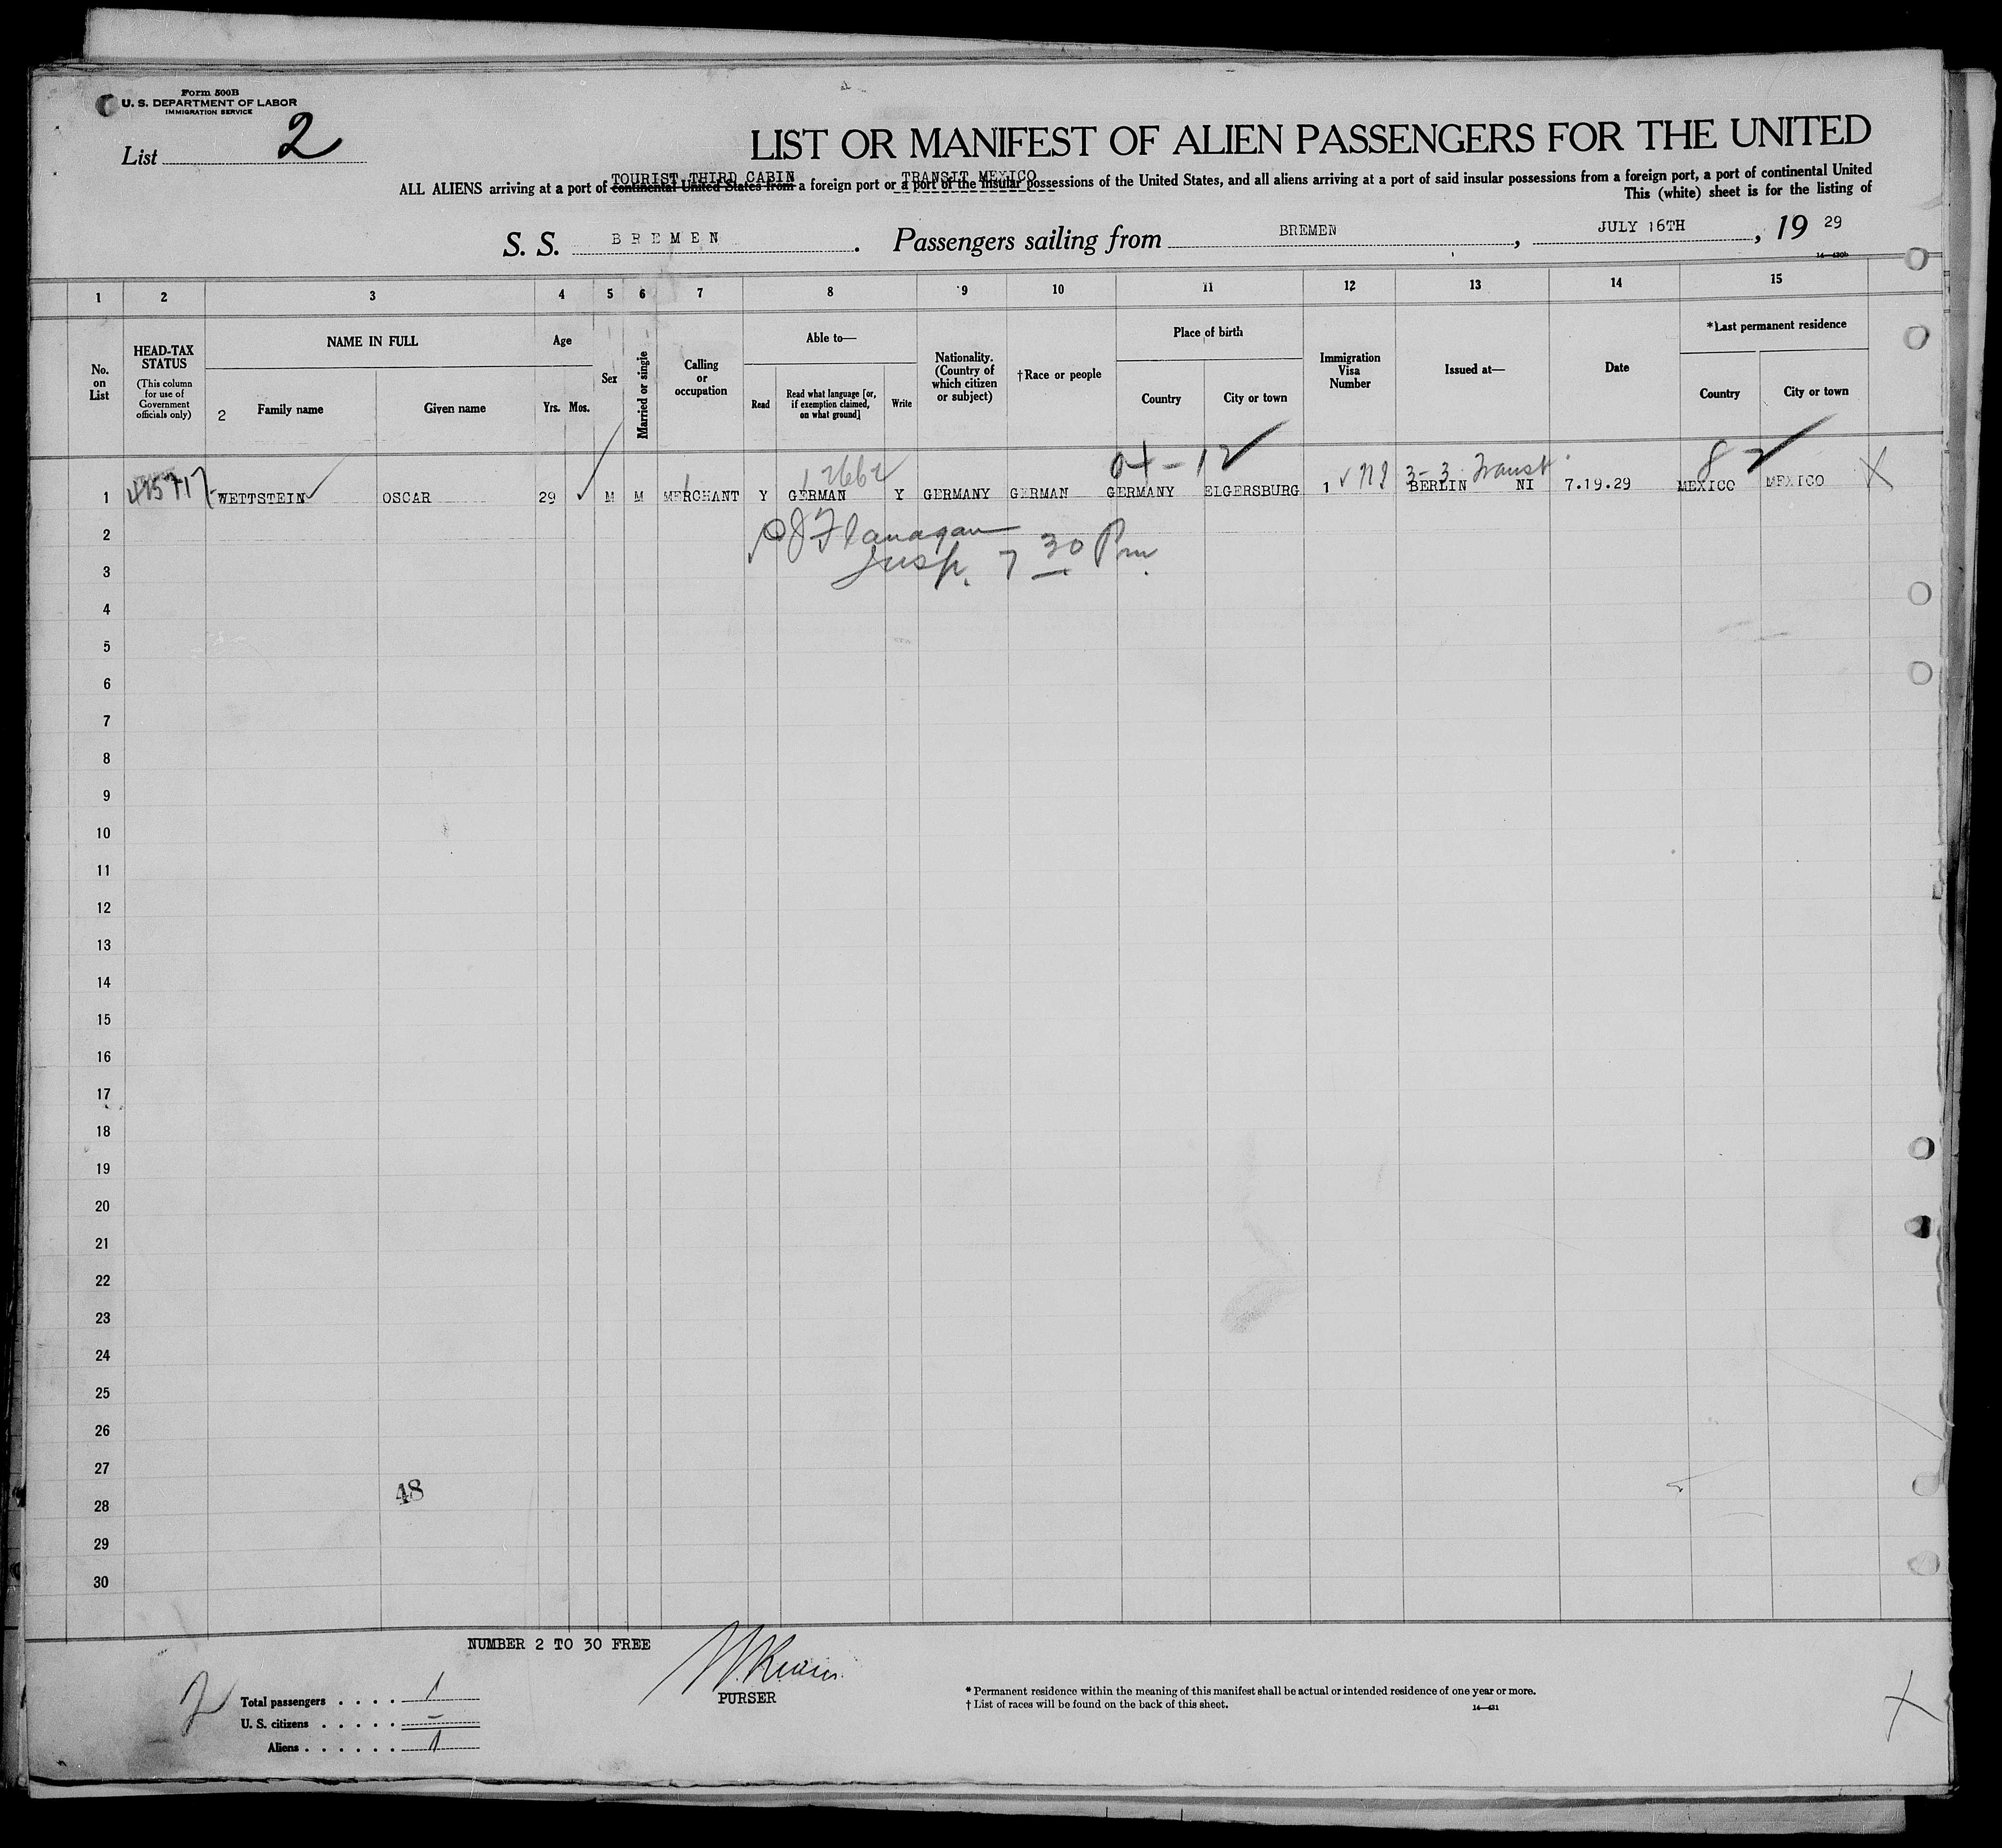 Form 500B
U. S. DEPARTMENT OF LABOR
IMMIGRATION SERVICE
List 2
LIST OR MANIFEST OF ALIEN PASSENGERS FOR THE UNITED
TOURIST THIRD CABIN TRANSIT MEXICO
ALL ALIENS arriving at a port of continental United States from a foreign port or a port of the insular possessions of the United States, and all aliens arriving at a port of said insular possessions from a foreign port, a port of continental United
This (white) sheet is for the listing of
S. S. BREMEN. Passengers sailing from BREMEN, JULY 16TH, 19 29
14—430b
1 2 3 4 5 6 7 8 9 10 11 12 13 14 15
No. on List
HEAD-TAX STATUS
(This column for use of Government officials only)
NAME IN FULL
2 Family name
Given name
Age
Yrs. Mos.
Sex
Married or single
Calling or occupation
Able to—
Read
Read what language [or, if exemption claimed, on what ground]
Write
Nationality. (Country of which citizen or subject)
†Race or people
Place of birth
Country
City or town
Immigration Visa Number
Issued at—
Date
*Last permanent residence
Country
City or town
04-12 3-3 Transt 8
1 WETTSTEIN OSCAR 29 M M MERCHANT Y GERMAN Y GERMANY GERMAN GERMANY ELGERSBURG 1 BERLIN NI 7.19.29 MEXICO MEXICO X
2 Flanagan
3 Insp. 7 30 Pm.
4
5
6
7
8
9
10
11
12
13
14
15
16
17
18
19
20
21
22
23
24
25
26
27
48
28
29
30
NUMBER 2 TO 30 FREE
PURSER
2
Total passengers . . . . 1
U. S. citizens . . . . . –
Aliens . . . . . . 1
* Permanent residence within the meaning of this manifest shall be actual or intended residence of one year or more.
† List of races will be found on the back of this sheet.
14—431
X